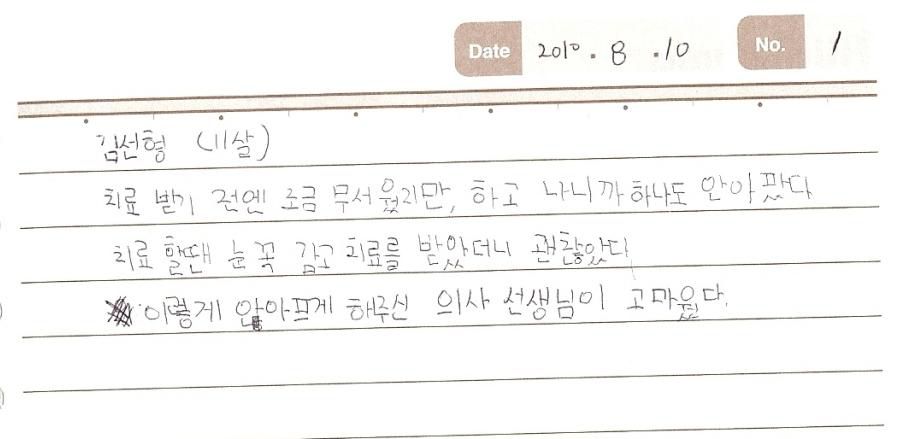 Date 2010 . 8 . 10 No. 1
김선형 (11살)
치료 받기 전엔 조금 무서웠지만, 하고 나니까 하나도 안아팠다
치료 할땐 눈 꼭 감고 치료를 받았더니 괜찮았다
이렇게 안아프게 해주신 의사 선생님이 고마웠다.